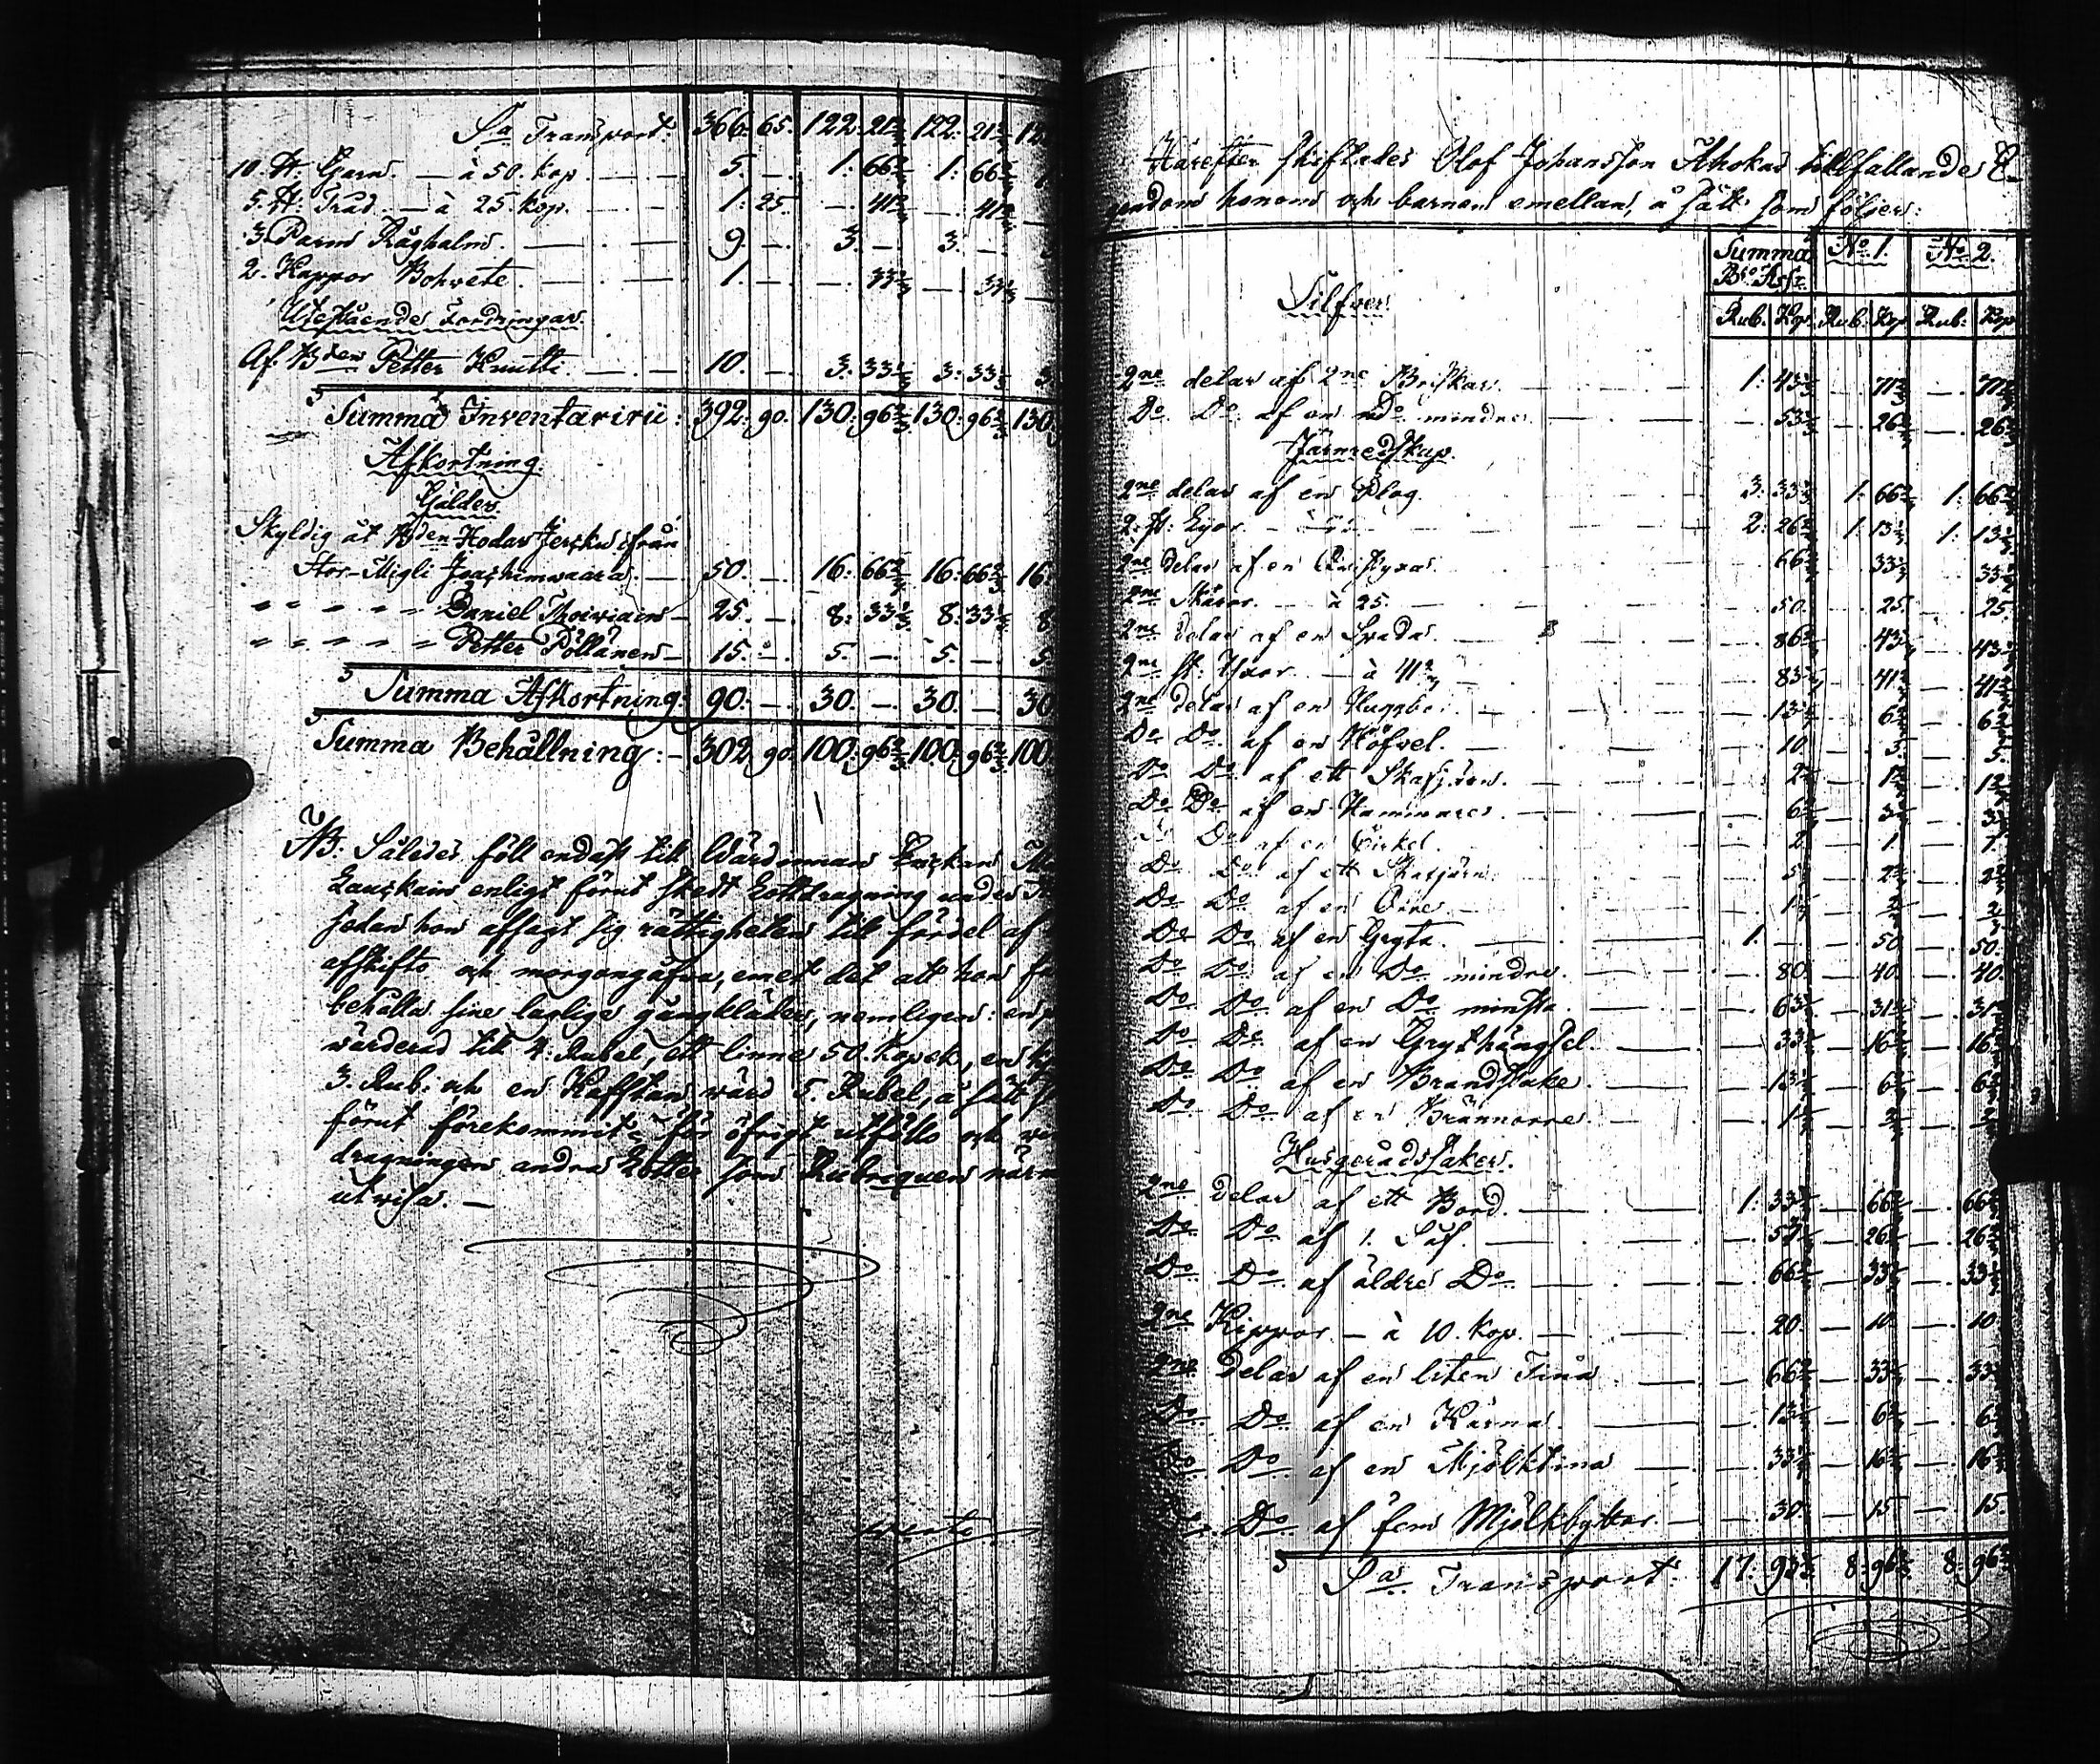 Sa Transport. 366: 65. 122: 21 2/3 122: 21 2/3 12
10. ℔: Garn. — à 50. kop. — 5. — 1: 66 2/3 1: 66 2/3
5. ℔: Tråd. — à 25. kop. — 1: 25. — 41 2/3 — 41 2/3
3. Parm Råghalm. — 9. — 3. — 3. —
2. Kappor Bohvete. — 1. — — 33 1/3 — 33 1/3
Utestående Fordringar.
Af Bden Petter Knutti. — 10. — 3: 33 1/3 3: 33 1/3 3
Summa Inventarii: 392: 90. 130: 96 2/3 130: 96 2/3 130
Afkortning.
Gälder.
Skyldig åt Bden Hodar Jerskin från
Stor-Migli Joachimwaara. — 50. — 16: 66 2/3 16: 66 2/3 16:
" " " " " Daniel — 25. — 8: 33 1/3 8: 33 1/3 8
" " " " " Petter Pöllänen — 15. — 5. — 5. — 5
Summa Afkortning: 90. — 30. — 30. — 30
Summa Behållning: — 302. 90. 100: 96 2/3 100: 96 2/3 100
NB. Således föll endast till Wärdinnan Enckan
Lauckain enligt förut skedt Lottdragning under
sedan hon afsagt sig rättigheten till fördel af
afskifto och morgongåfva, emot det att hon
behålla sine laglige gångkläder, nemligen: en
värderad till 4. Rubel, ett linne 50. kopek, en
3. Rub: och en Kafftan värd 5. Rubel, å sätt
förut förekommit; för öfrigt utföllo och
dragningen andra Lotter som Rubriquen närm
utvisa. —
verte
Härefter skiftades Olof Johansson Ahokas tillfallande E-
gendom honom och barnen emellan, å sätt som följer:
Summa No 1. No 2.
Bco Assr
Silfver.
Rub. Kop. Rub: Kop Rub: Kop
2ne delar af 2ne Briskar. — 1: 43 1/3 — 71 2/3 — 71 2/3
Do Do af en Do mindre — — 53 1/3 — 26 2/3 — 26 2/3
Järnredskap.
2ne delar af en Plog. — 3: 33 1/3 1: 66 2/3 1: 66 2/3
2. st: Lyor. — 2: 26 2/3 1: 13 1/3 1: 13 1/3
2ne delar af en — 66 2/3 — 33 1/3 — 33 1/3
2ne Skäror. — à 25. — — 50. — 25. — 25.
2ne delar af en Spada. — 86 2/3 — 43 1/3 — 43 1/3
2ne st: Yxor. — à 41 2/3 — 83 1/3 — 41 2/3 — 41 2/3
2ne delar af en — 13 1/3 — 6 2/3 — 6 2/3
Do Do af en Höfvel. — 10 — 5. — 5.
Do Do af ett Skafjärn. — 2 2/3 — 1 1/3 — 1 1/3
Do Do af en Hammare. — 6 2/3 — 3 1/3 — 3 1/3
Do Do af en Cirkel. — 2. — 1 — 1.
Do Do af ett — 5 1/3 — 2 2/3 — 2 2/3
Do Do af en — 1 1/3 — 2/3 — 2/3
Do Do af en Gryta. — 1. — — 50 — 50.
Do Do af en Do mindre. — 80. — 40. — 40.
Do Do af en Do minsta. — 63 1/3 — 31 2/3 — 31 2/3
Do Do af en Grythängsel. — 33 1/3 — 16 2/3 — 16 2/3
Do Do af en Brandstake. — 13 1/3 — 6 2/3 — 6 2/3
Do Do af en — 1 1/3 — 2/3 — 2/3
Husgerådssaker.
2ne delar af ett Bord. — 1: 33 1/3 — 66 2/3 — 66 2/3
Do Do af 1. Så. — 53 1/3 — 26 2/3 — 26 2/3
Do Do af äldre Do — 66 2/3 — 33 1/3 — 33 1/3
2ne Kippor — à 10. kop. — 20. — 10 — 10
2ne delar af en liten Tina — 66 2/3 — 33 1/3 — 33 1/3
Do Do af en Kärna. — 13 1/3 — 6 2/3 — 6 2/3
Do Do af en Mjölktina — 33 1/3 — 16 2/3 — 16 2/3
Do Do af fem Mjölkbyttor — 30. — 15 — 15
Sa Transport: 17: 93 1/3 8: 96 2/3 8: 96 2/3